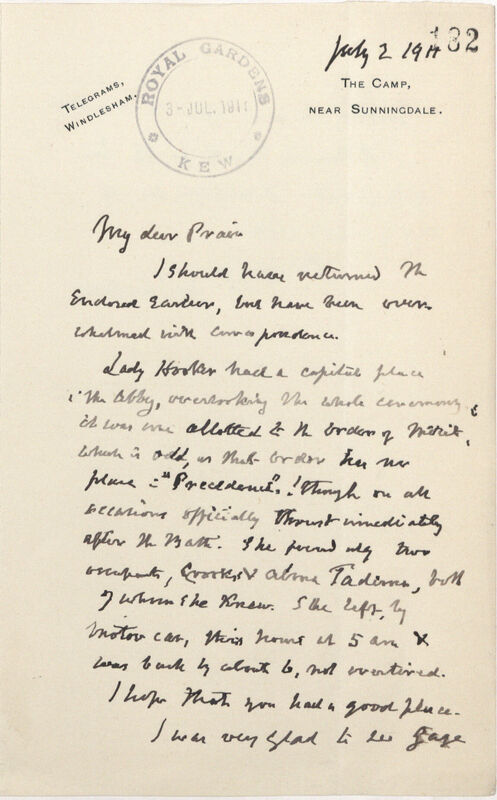 July 2 1911 132
TELEGRAMS,
WINDLESHAM.
ROYAL GARDENS
3-JUL.1911
KEW
THE CAMP,
NEAR SUNNINGDALE.
My dear Prain
I should have returned the
enclosed earlier, but have been over-
whelmed with correspondence.
Lady Hooker had a capital place
in the Abbey, overlooking the whole ceremony;
it was one allotted to the Order of Merit,
which is odd, as that order has no
place in "Precedence"! though on all
occasions officially thrust immediately
after the Bath. She found only two
occupants, Crookes & Alma Tadema, both
of whom she knew. She left, by
motor car, this house at 5 am &
was back by about 6, not overtired.
I hope that you had a good place.
I was very glad to see Gage